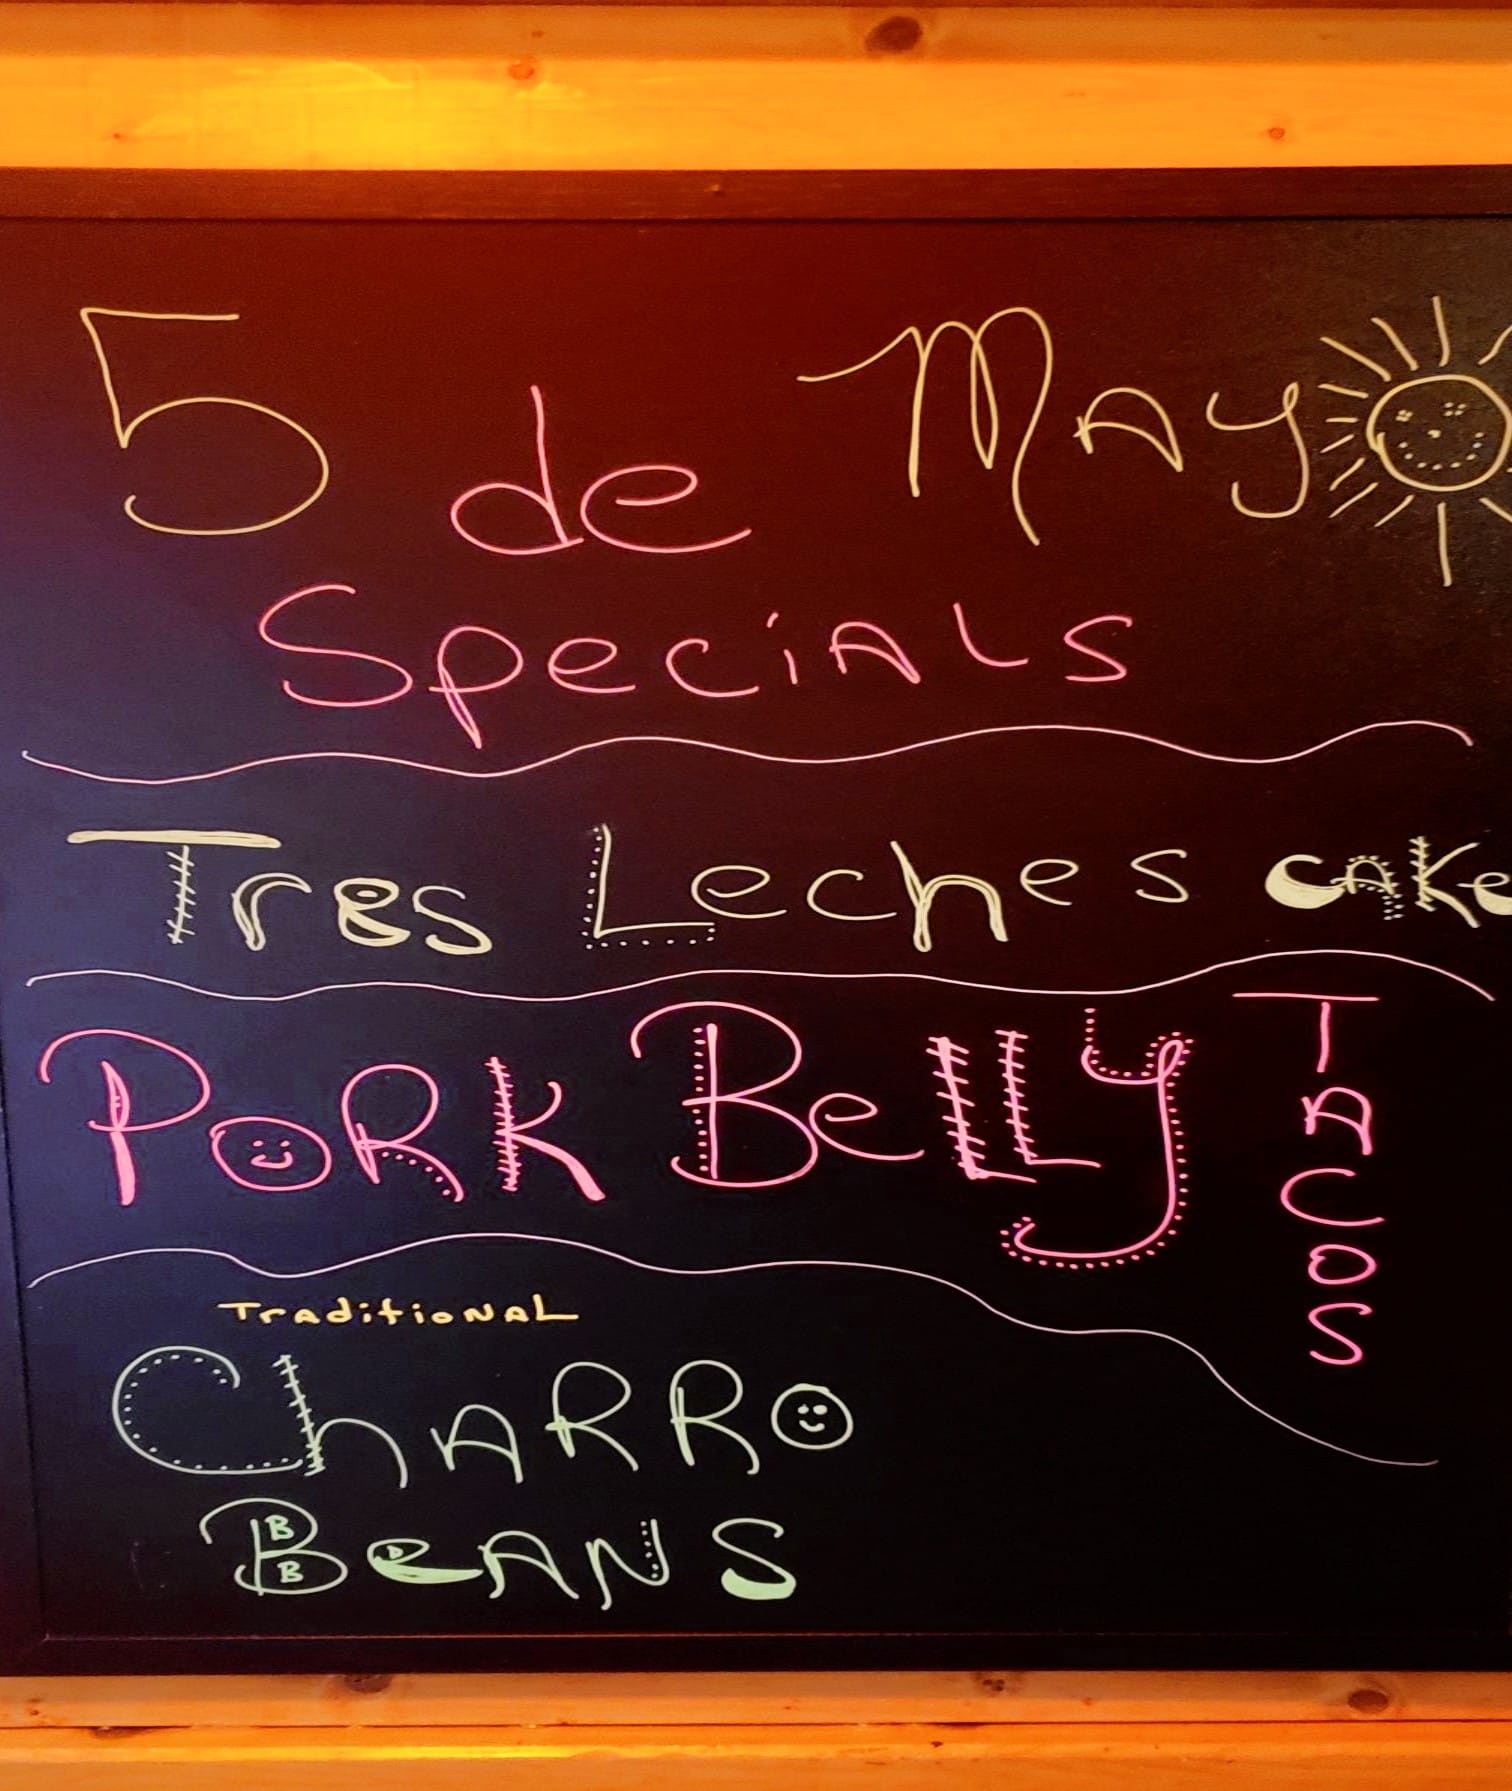 5 de Mayo
Specials
Tres Leches cake
Pork Belly TACOS
Traditional
ChARRo
BeANS